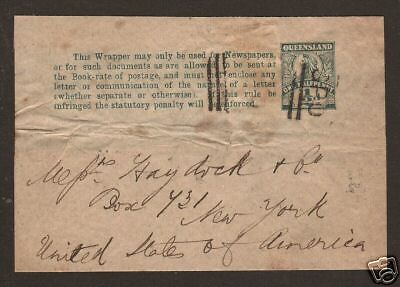 This Wrapper may only be used for Newspapers,
or for such documents as are allowed to be sent at
the Book-rate of postage, and must not enclose any
letter or communication of the nature of a letter
(whether separate or otherwise). If this rule be
infringed the statutory penalty will be enforced.
QUEENSLAND
Messrs Haydock & Co
Box 731
New York
United States of America